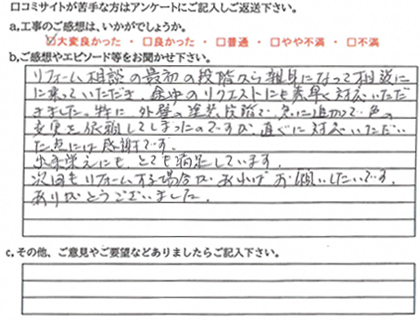 口コミサイトが苦手な方はアンケートにご記入しご返送下さい。
a.工事のご感想は、いかがでしょうか。
☑大変良かった ・ □良かった ・ □普通 ・ □やや不満 ・ □不満
b.ご感想やエピソード等をお聞かせ下さい。
リフォーム相談の最初の段階から親身になって相談に
に乗っていただき、途中のリクエストにも素早く対応いただ
きました。特に外壁の塗装段階で、急に追加で色の
変更を依頼してしまったのですが、直ぐに対応いただい
た点には感謝です。
出来栄えにも、とても満足しています。
次回もリフォームする場合があればお願いしたいです。
ありがとうございました。
c.その他、ご意見やご要望などありましたらご記入下さい。